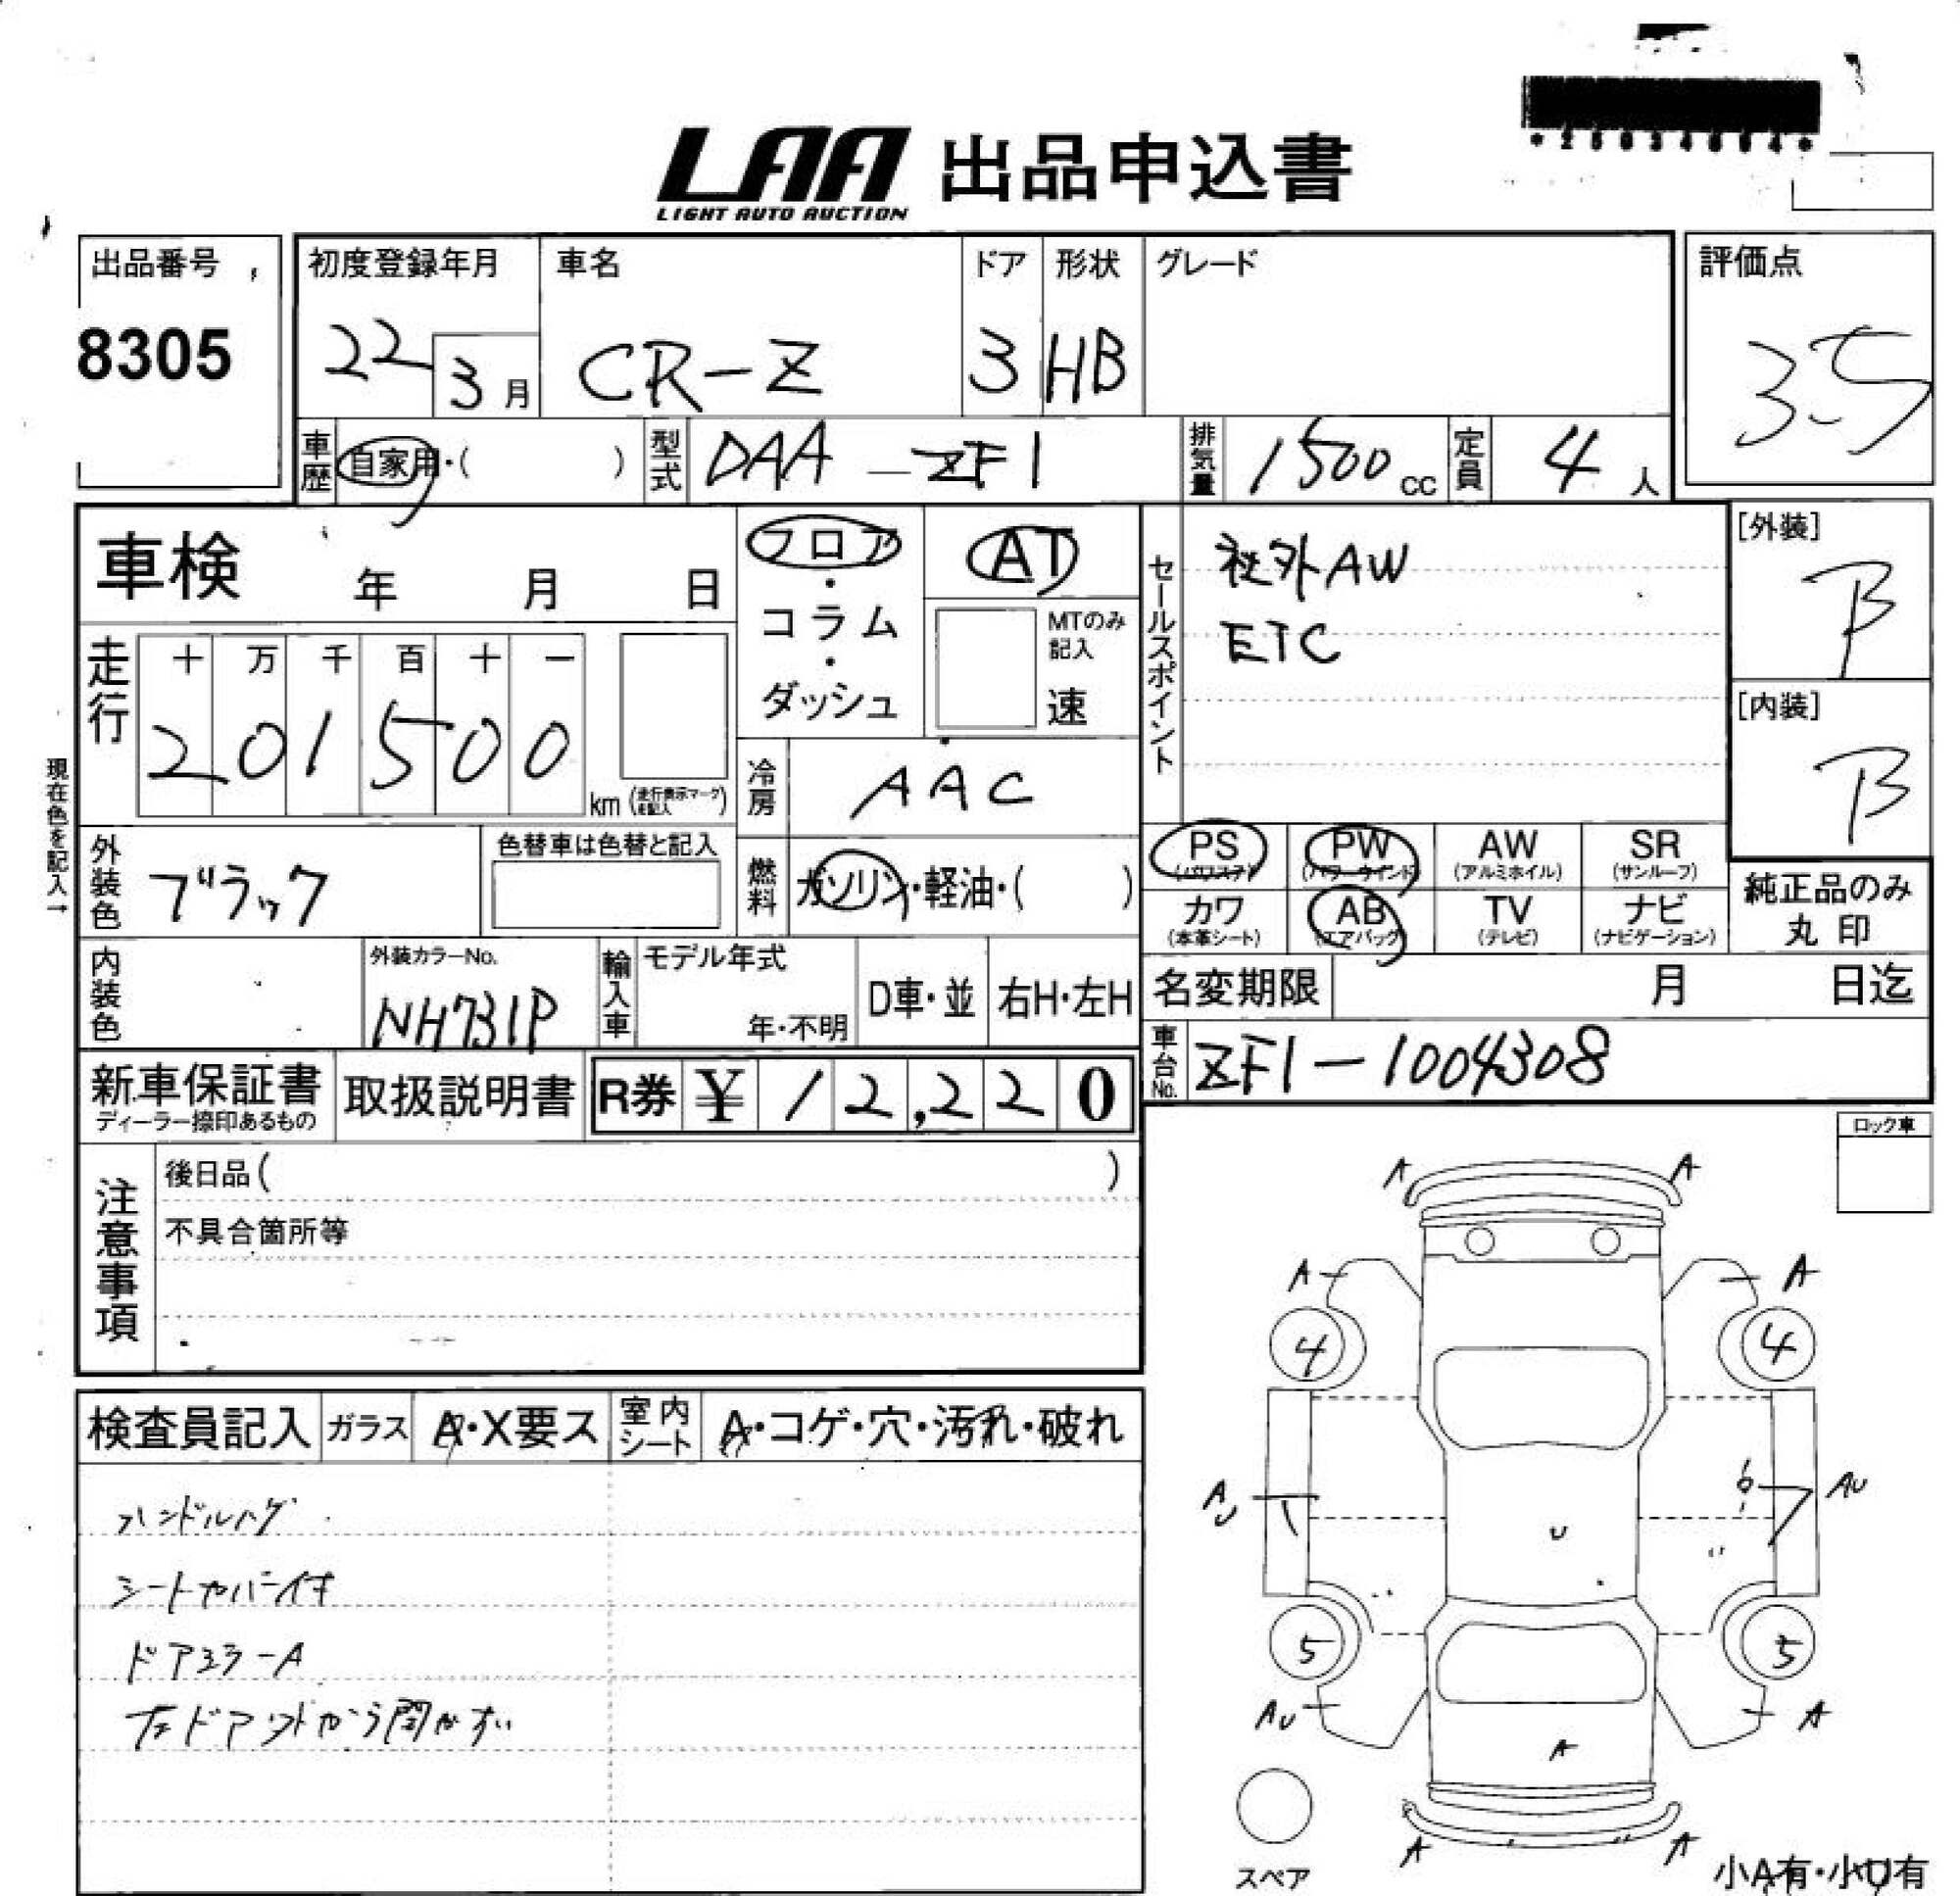 LAA 出品申込書
LIGHT AUTO AUCTION
出品番号
8305
初度登録年月
22 3月
車名
CR-Z
ドア
3
形状
HB
グレード
評価点
3.5
車歴 自家用・( )
型式 DAA-ZF1
排気量 1500 cc
定員 4 人
車検 年 月 日
フロア・コラム・ダッシュ
AT
MTのみ記入
速
セールスポイント
社外AW
ETC
[外装]
B
[内装]
B
走行
十 万 千 百 十 一
2 0 1 5 0 0 km (走行表示マーク記入)
冷房 AAC
現在色を記入→
外装色 ブラック
色替車は色替と記入
燃料 ガソリン・軽油・( )
PS (パワステ)
PW (パワーウインド)
AW (アルミホイル)
SR (サンルーフ)
カワ (本革シート)
AB (エアバック)
TV (テレビ)
ナビ (ナビゲーション)
純正品のみ
丸印
内装色
外装カラーNo.
NH731P
輸入車
モデル年式
年・不明
D車・並
右H・左H
名変期限 月 日迄
車台No. ZF1-1004308
新車保証書
ディーラー捺印あるもの
取扱説明書
R券 ¥12,220
ロック車
注意事項
後日品( )
不具合箇所等
検査員記入
ガラス A・X要ス
室内シート A・コゲ・穴・汚れ・破れ
ハンドルハゲ
シートカバー付キ
ドアミラーA
左ドアソトから開かず
A A
A A
4 4
AU AU
U
5 5
AU A
A
A A
スペア
小A有・小U有